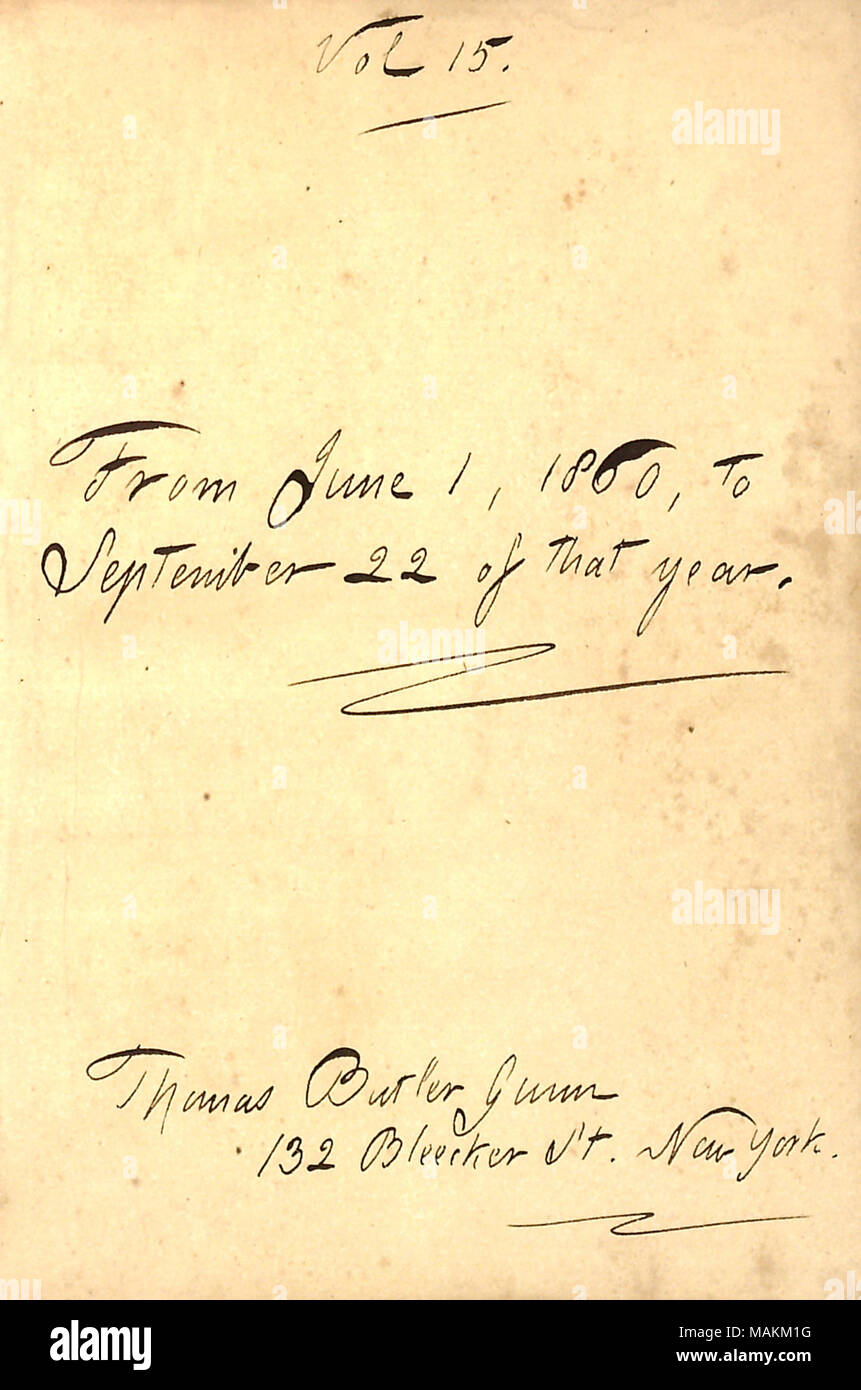 Vol 15.
From June 1, 1860, to
September 22 of that year.
Thomas Butler Gunn
132 Bleecker St. New York.
alamy
Image ID: MAKM1G
www.alamy.com